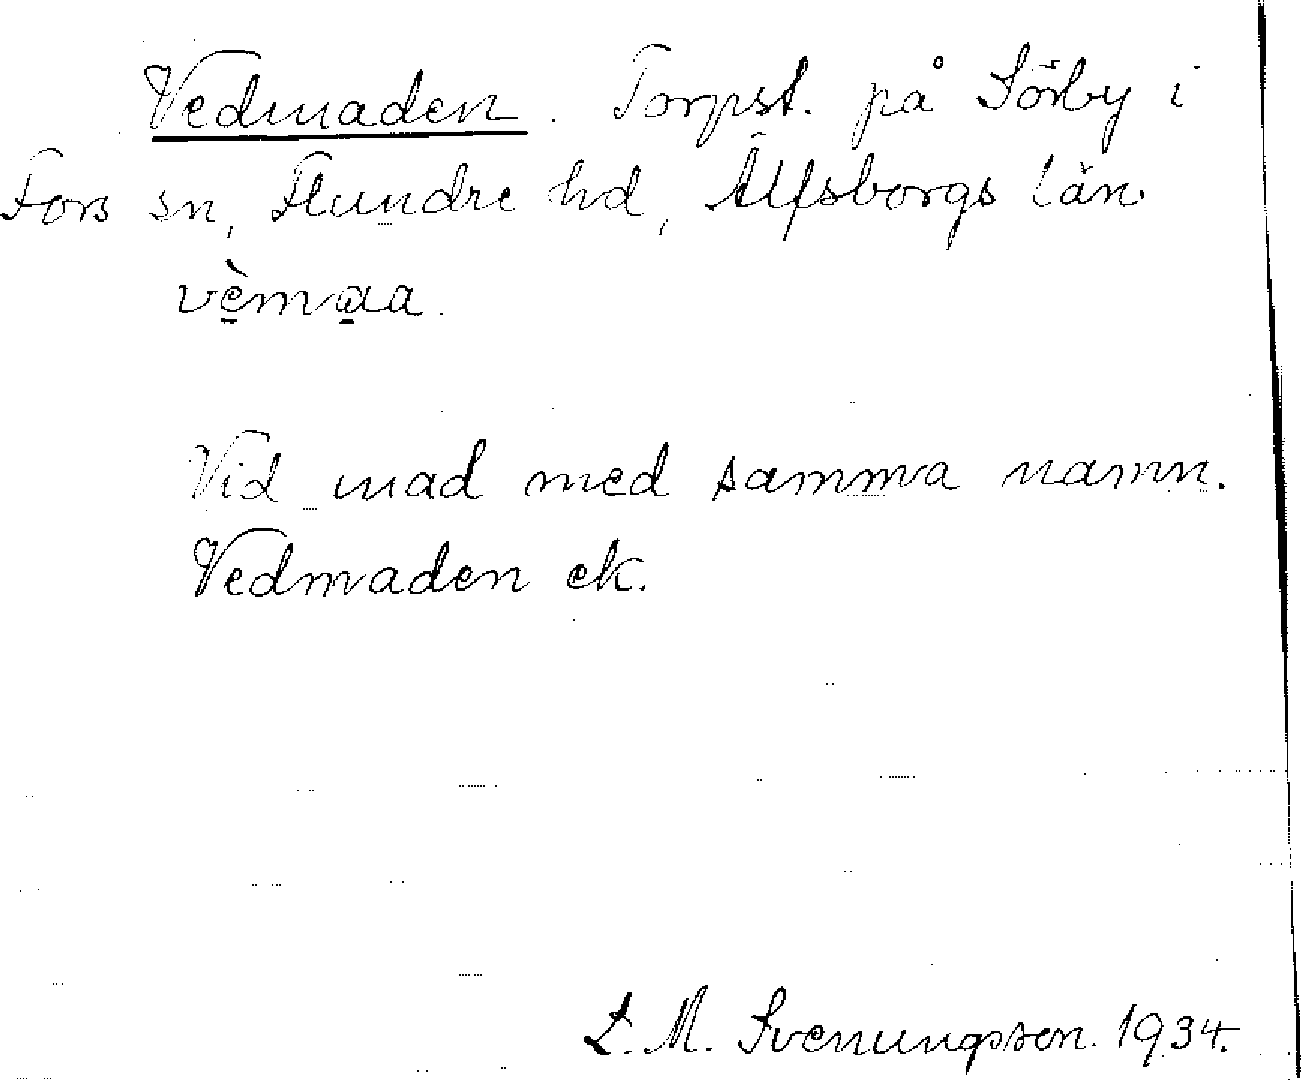 Vedmaden. Torpst. på Sörby i
Fors sn, Flundre hd, Älfsborgs län.
vèmaa.
Vid mad med samma namn.
Vedmaden ek.
S. M. Svenungsson. 1934.